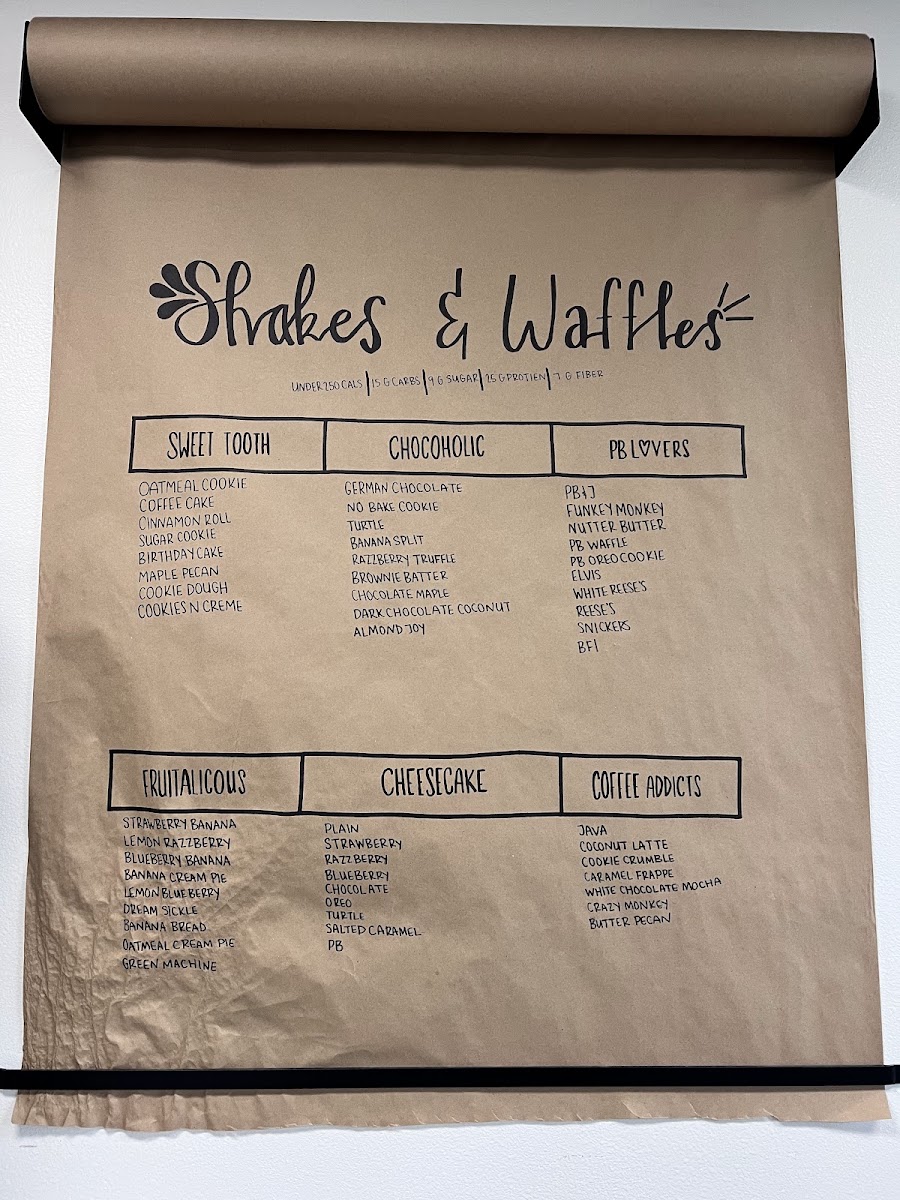 Shakes & Waffles
UNDER 250 CALS | 15 G CARBS | 9 G SUGAR | 25 G PROTIEN | 7 G FIBER
SWEET TOOTH
OATMEAL COOKIE
COFFEE CAKE
CINNAMON ROLL
SUGAR COOKIE
BIRTHDAY CAKE
MAPLE PECAN
COOKIE DOUGH
COOKIES N CREME
CHOCOHOLIC
GERMAN CHOCOLATE
NO BAKE COOKIE
TURTLE
BANANA SPLIT
RAZZBERRY TRUFFLE
BROWNIE BATTER
CHOCOLATE MAPLE
DARK CHOCOLATE COCONUT
ALMOND JOY
PB L♡VERS
PB&J
FUNKEY MONKEY
NUTTER BUTTER
PB WAFFLE
PB OREO COOKIE
ELVIS
WHITE REESE'S
REESE'S
SNICKERS
BFI
FRUITALICOUS
STRAWBERRY BANANA
LEMON RAZZBERRY
BLUEBERRY BANANA
BANANA CREAM PIE
LEMON BLUEBERRY
DREAM SICKLE
BANANA BREAD
OATMEAL CREAM PIE
GREEN MACHINE
CHEESECAKE
PLAIN
STRAWBERRY
RAZZBERRY
BLUEBERRY
CHOCOLATE
OREO
TURTLE
SALTED CARAMEL
PB
COFFEE ADDICTS
JAVA
COCONUT LATTE
COOKIE CRUMBLE
CARAMEL FRAPPE
WHITE CHOCOLATE MOCHA
CRAZY MONKEY
BUTTER PECAN